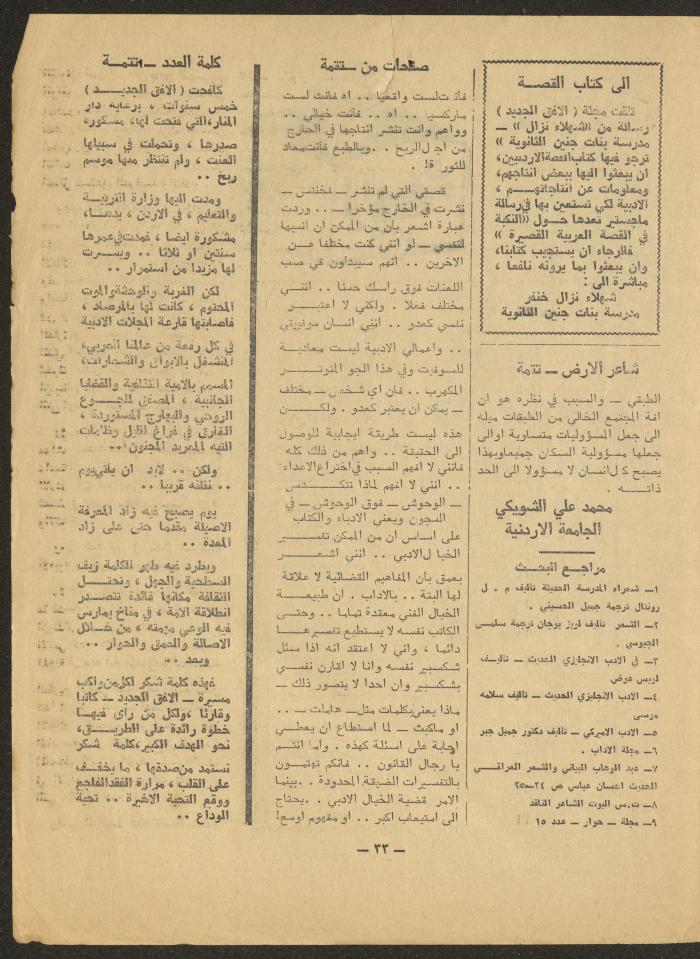 الى كتاب القصة
تلقت مجلة ( الافق الجديد )
رسالة من «شهلاء نزال » ــ
مدرسة بنات جنين الثانوية »
ترجو فيها كتاب القصة الاردنيين،
ان يبعثوا اليها ببعض انتاجهم،
ومعلومات عن انتاجاتهم ،
الادبية لكي تستعين بها في رسالة
ماجستير تعدها حول «النكبة
في القصة العربية القصيرة »
فالرجاء ان يستجيب كتابنا،
وان يبعثوا بما يرونه نافعا ،
مباشرة الى :
شهلاء نزال خنفر
مدرسة بنات جنين الثانوية
شاعر الارض ــ تتمة
الطبقي ــ والسبب في نظره هو ان
آفة المجتمع الخالي من الطبقات ميله
الى جعل المسؤوليات متساوية او الى
جعلها مسؤولية السكان جميعا وبهذا
يصبح كل انسان لا مسؤولا الى الحد
ذاته .
محمد علي الشويكي
الجامعة الاردنية
مراجع البحث
١ــ شعراء المدرسة الحديثة تاليف م . ل
روزنتال ترجمة جميل الحسيني .
٢ــ الشعر تاليف لويز بوجان ترجمة سلمى
الجيوسي .
٣ــ في الادب الانجليزي الحديث ــ تاليف
لويس عوض
٤ــ الادب الانجليزي الحديث ــ تاليف سلامه
موسى
٥ــ الادب الاميركي ــ تاليف دكتور جميل جبر
٦ــ مجلة الاداب .
٧ــ عبد الوهاب البياتي والشعر العراقي
الحديث احسان عباس ص ٢٤ــ٢٥
٨ــ ت.س اليوت الشاعر الناقد
٩ــ مجلة ــ حوار ــ عدد ١٥
صفحات من ــ تتمة
فانت لست واقعيا .. اه فانت لست
ماركسيا .. اه .. فانت خيالي ..
وواهم وانت تنشر انتاجها في الخارج
من اجل الربح .. وبالطبع فانت معاد
للثورة !.
قصتي التي لم تنشر ــ فخنس ــ
نشرت في الخارج مؤخرا ــ .. وردت
عبارة اشعر بأن من الممكن ان انسبها
لنفسي ــ لو انني كنت مختلفا عن
الاخرين .. انهم سيبداون في صب
اللعنات فوق راسك حسنا .. انني
مختلف فعلا . ولكني لا اعتبر
نفسي كعدو .. انني انسان سوفيتي
.. واعمالي الادبية ليست معادية
للسوفيت وفي هذا الجو المتوتر
المكهرب .. فان اي شخص ــ مختلف
ــ يمكن ان يعتبر كعدو . ولكن
هذه ليست طريقة ايجابية للوصول
الى الحقيقة .. واهم من ذلك كله
فانني لا افهم السبب في اختراع الاعداء
.. انني لا افهم لماذا تتكدس
ــ الوحوش ــ فوق الوحوش ــ في
السجون ويعني الادباء والكتاب
على اساس ان من الممكن تفسير
الخيال الادبي .. انني اشعر
بعمق بان المفاهيم القضائية لا علاقة
لها البتة .. بالاداب . ان طبيعة
الخيال الفني معقدة تماما .. وحتى
الكاتب نفسه لا يستطيع تفسيرها
دائما ، واني لا اعتقد انه اذا سئل
شكسبير نفسه وانا لا اقارن نفسي
بشكسبير وان احدا لا يتصور ذلك ــ
ماذا يعني بكلمات مثل ــ هاملت ــ ..
او ماكبث ــ لما استطاع ان يعطي
اجابة على اسئلة كهذه . واما انتم
يا رجال القانون .. فانكم تهتمون
بالتفسيرات الضيقة المحدودة .. بينما
الامر قضية الخيال الادبي .. يحتاج
الى استيعاب اكبر .. او مفهوم اوسع!
كلمة العدد ــ تتمة
كافحت ( الافق الجديد )
خمس سنوات ، برعاية دار
المنار، التي فتحت لها، مشكورة
صدرها ، وتحملت في سبيلها
العنت ، ولم تنتظر منها موسم
ربح ..
ومدت اليها وزارة التربية
والتعليم ، في الاردن ، يدها،
مشكورة ايضا ، فمدت في عمرها
سنتين او ثلاثا .. ويسرت
لها مزيدا من استمرار ..
لكن الغربة والوحشة والموت
المحتوم ، كانت لها بالمرصاد ،
فاصابتها قارعة المجلات الادبية
في كل رقعة من عالمنا العربي،
المنشغل بالابواق والشعارات،
المتسم بالامية الثقافية والقضايا
الجانبية ، المصغي للجوع
الروحي والبهارج المستوردة ،
الغارق في فراغ الليل وظلمات
التيه المعربد المجنون ..
ولكن .. لابد ان ياتي يوم
.. نظنه قريبا ..
يوم يصبح فيه زاد المعرفة
الاصيلة مقدما حتى على زاد
المعدة ..
ويطرد فيه طهر الكلمة زيف
السطحية والجهل ، وتحتل
الثقافة مكانها قائدة تتصدر
انطلاقة الامة ، في مناخ يمارس
فيه الوعي مهمته ، من خلال
الاصالة والعمق والحوار ..
وبعد ..
فهذه كلمة شكر لكل من واكب
مسيرة ــ الافق الجديد ــ كاتبا
وقارئا ، ولكل من رأى فيها
خطوة رائدة على الطريق،
نحو الهدف الكبير، كلمة شكر
نستمد من صدقها ، ما يخفف
على القلب ، مرارة الفقد الفاجع
ووقع التحية الاخيرة .. تحية
الوداع ..
ــ ٣٣ ــ